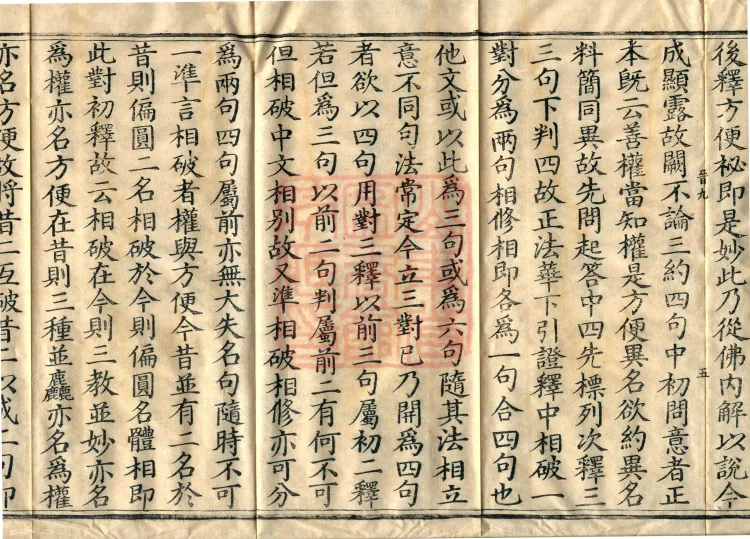 後釋方便祕即是妙此乃從佛內解以說今
晉九
五
成顯露故闕不論三約四句中初問意者正
本既云善權當知權是方便異名欲約異名
料簡同異故先問起答中四先標列次釋三
三句下判四故正法華下引證釋中相破一
對分為兩句相修相即各為一句合四句也
他文或以此為三句或為六句隨其法相立
意不同句法常定今立三對已乃開為四句
者欲以四句用對三釋以前三句屬初二釋
若但為三句以前二句判屬前二有何不可
但相破中文相別故又準相破相修亦可分
為兩句四句屬前亦無大失名句隨時不可
一準言相破者權與方便今昔並有二名於
昔則偏圓二名相破於今則偏圓名體相即
此對初釋故云相破在今則三教並妙亦名
為權亦名方便在昔則三種並麤亦名為權
亦名方便故將昔二互破昔二以成二句即